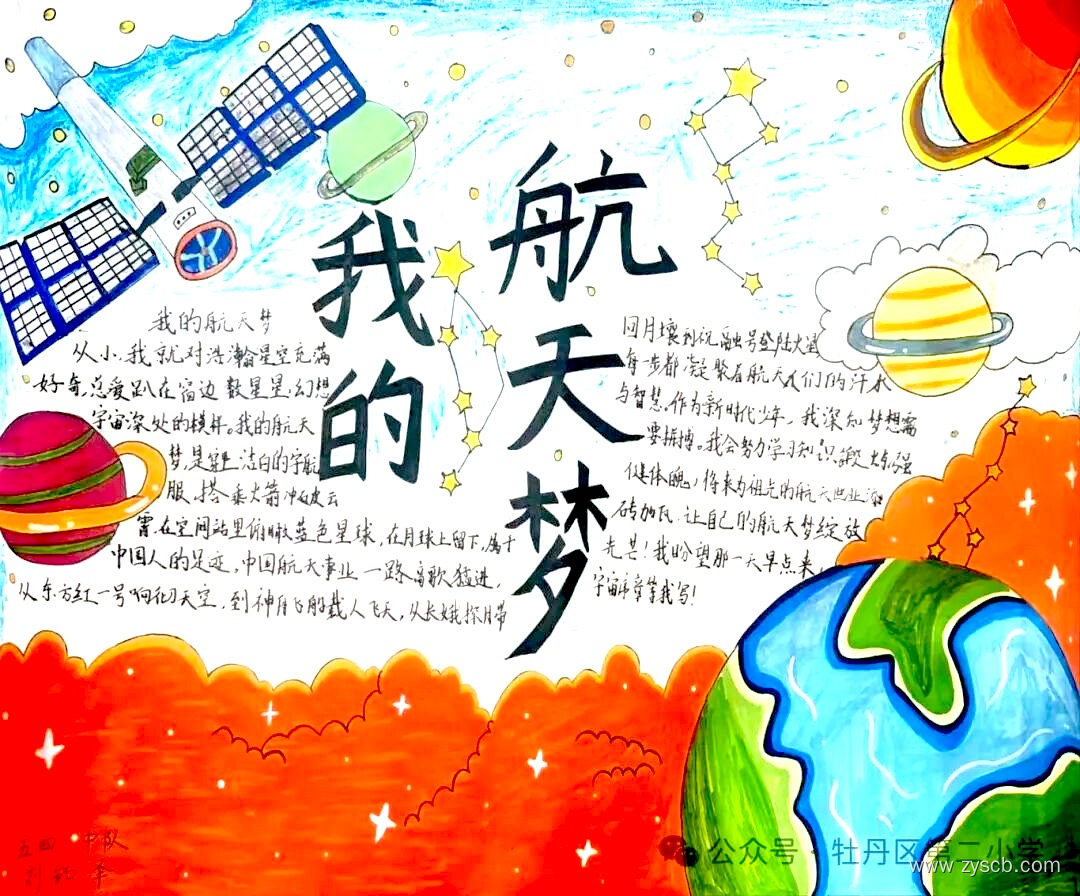 我的
航天梦
我的航天梦
从小,我就对浩瀚星空充满
好奇,总爱趴在窗边数星星,幻想
宇宙深处的模样。我的航天
梦,是穿上洁白的宇航
服,搭乘火箭冲破云
霄,在空间站里俯瞰蓝色星球,在月球上留下,属于
中国人的足迹,中国航天事业一路高歌猛进,
从东方红一号响彻天空,到神舟飞船载人飞天,从长娥探月带
回月壤到祝融号登陆火星
每一步都凝聚着航天人们的汗水
与智慧。作为新时代少年,我深知梦想需
要拼搏。我会努力学习知识,锻炼强
健体魄,将来为祖先的航天世业添
砖加瓦,让自己的航天梦绽放
光芒!我盼望那一天早点来,
宇宙序章等我写!
五四 中队
公众号·牡丹区第二小学
www.zyscb.com